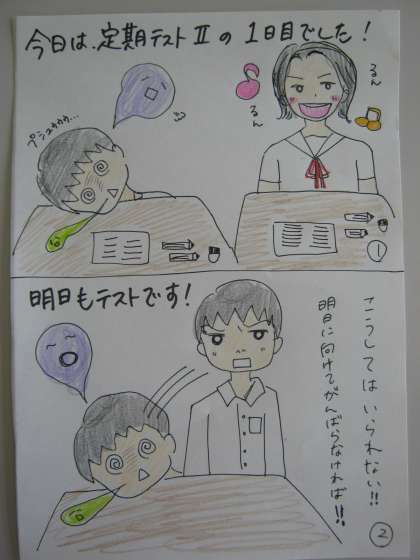 今日は、定期テストⅡの1日目でした!
プシュゥゥゥ…
るん
るん
①
明日もテストです!
こうしてはいられない!!
明日に向けてがんばらなければ!!
②